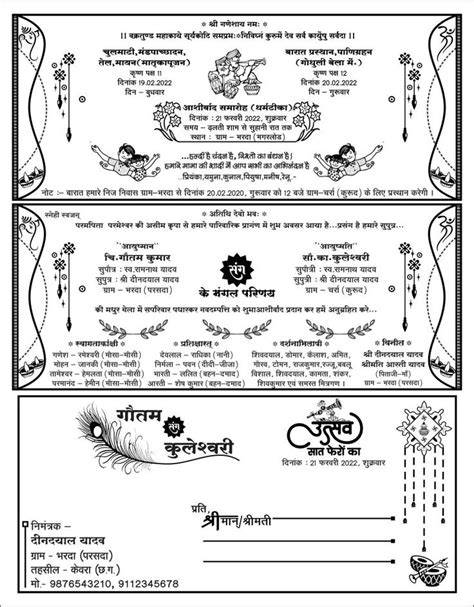 * श्री गणेशाय नमः *
।। वक्रतुण्ड महाकाये सूर्यकोटि समप्रभः निविघ्नं कुरुमें देव सर्व कार्येषु सर्वदा ।।
चुलमाटी, मंडपाच्छादन,
तेल, मायन (मातृकापूजन)
कृष्ण पक्ष 11
दिनांक 19.02.2022
दिन - बुधवार
बारात प्रस्थान, पाणिग्रहन
(गोधुली बेला में.)
कृष्ण पक्ष 12
दिनांक 20.02.2022
दिन - गुरूवार
आशीर्वाद समारोह (धर्मटीका)
दिनांक : 21 फरवरी 2022, शुक्रवार
समय - ढलती शाम से सुहानी रात तक
स्थान : ग्राम - भरदा (मगरलोड)
...हल्दी है चंदन है, रिश्तों का बंधन है।
हमारे मामा की शादी में आप सभी का अभिनंदन है।
...प्रियंका, यमुना, कुनाल, पियुषा, मनीष, रोहित...
नोट :- बारात हमारे निज निवास ग्राम-भरदा से दिनांक 20.02.2020, गुरूवार को 12 बजे ग्राम-चर्रा (कुरूद) के लिए प्रस्थान करेगी ।
स्नेही स्वजनम्
* अतिथि देवो भवः *
परमपिता परमेश्वर की असीम कृपा से हमारे पारिवारिक प्रागंण में शुभ अवसर आया है...प्रसंग है हमारे सुपुत्र...
"आयुष्मान"
चि. गौतम कुमार
सुपौत्र : स्व. रामनाथ यादव
सुपुत्र : श्री दीनदयाल यादव
ग्राम - भरदा (परसदा)
संग
"आयुष्मति"
सौ.का. कुलेश्वरी
सुपौत्री : स्व. रामनाथ यादव
सुपुत्री : श्री दीनदयाल यादव
ग्राम - चर्रा (कुरूद)
के मंगल परिणय
की मधुर बेला में सपरिवार पधारकर नवदम्पत्ति को शुभाआर्शीवाद प्रदान कर हमें अनुग्रहित करे...
* स्वागताकांक्षी *
गणेश - रमेश्वरी (मोसा-मोसी)
मोहन - जानकी (मोसा-मोसी)
तामेश्वर - हेमलता (मोसा-मोसी)
परमानंद - हेमीन (मोसा-मोसी)
* प्रतिक्षारत *
देवलाल - राधिका (नानी)
निर्मला - पवन (दीदी-जीजा)
भारती - ललित (बहन-दामाद)
आरती - शेष कुमार (बहन-दामाद)
* दर्शनाभिलाषी *
शिवदयाल, डोमार, केलाश, अमित,
गोलू, टोमन, राजकुमार, रज्जू, बबलू
विशाल, शिवदयाल, कामता, शंकर,
शिवकुमार एवं समस्त मित्रगण ।
* विनीत *
श्री दीनदयाल यादव
श्रीमति आरती यादव
(पिताजी-माँ)
ग्राम - भरदा (परसदा)
गौतम
संग
कुलेश्वरी
उत्सव
सात फेरों का
दिनांक : 21 फरवरी 2022, शुक्रवार
प्रति,
श्रीमान/श्रीमती
निमंत्रक -
दीनदयाल यादव
ग्राम - भरदा (परसदा)
तहसील - केवरा (छ.ग.)
मो.- 9876543210, 9112345678